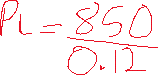 PL = 850
0.12